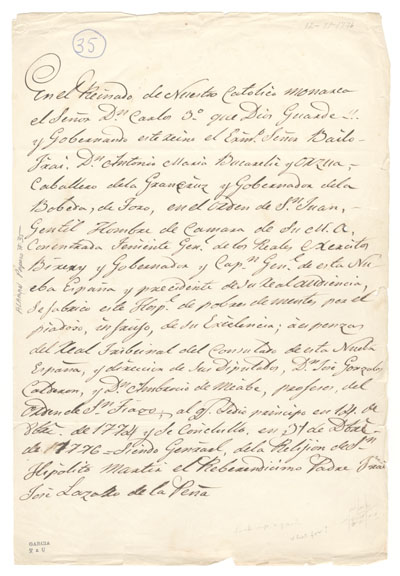 35
En el Reinado de Nuestro Catolico monarca
el Señor Dn Carlos 3º que Dios Guarde
y Gobernando este reino el Exmº Señor Bailo
Frai Dn Antonio Maria Bucareli y
Caballero dela y Gobernador dela
Bobeda, de Toro, en el orden de Sn Juan,
Gentil Hombre de Camara de Su M.A.
Teniente Genl de los Reales exercitos
Birrey y Gobernador y Capn Genl de esta Nu
eba España y precidente de Su Real audiencia,
Se fabrico este Hospl de pobres dementes por el
piadoso, de Su Exelencia; a espensas
del Real Tribunal del Consulado de esta Nueba
España, y direccion de sus Diputados, Dn José Gonzales
Calderon, y Dn Ambrocio de Meabe, profesos del
orden de Sn se dio principo en 14 de
de 1774 y se Conclullo en
de 1776 Siendo Genrael, dela Relijion de Sn
Hipolito Martir el Reberendicimo Padre Frai
José de la Peña
GARCIA